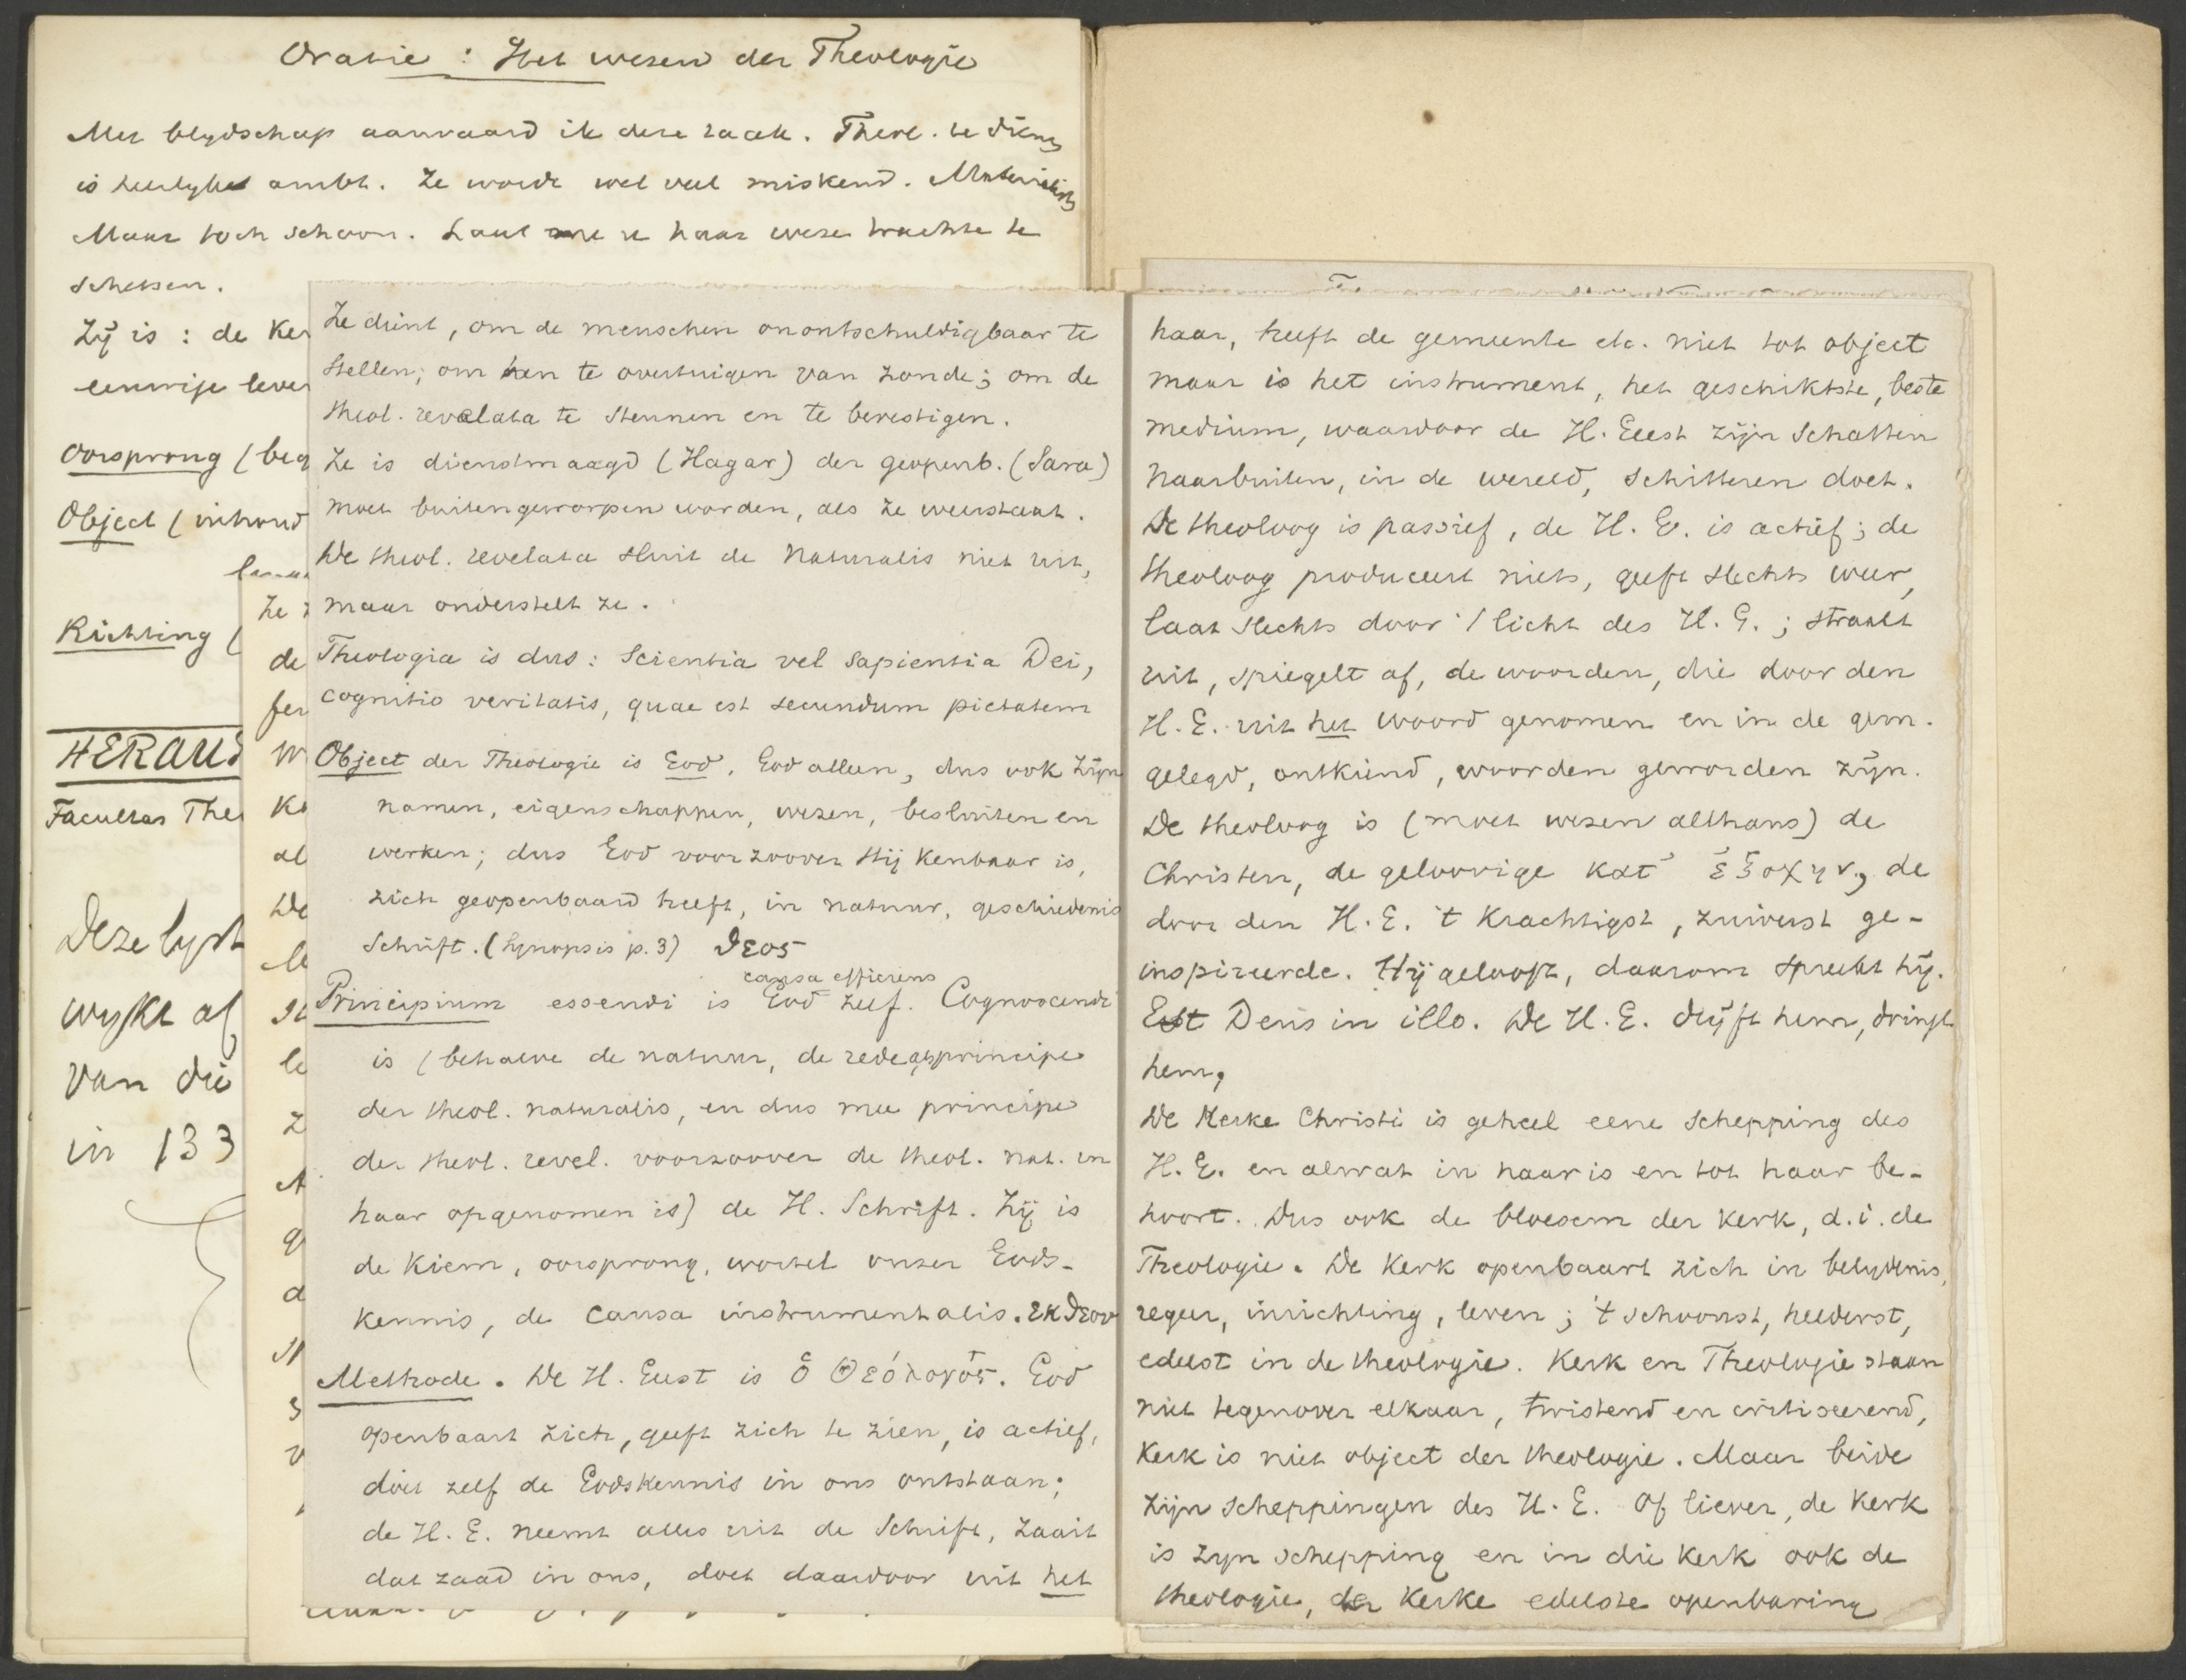 Oratie: Het wezen der Theologie
Met blydschap aanvaard ik deze taak. Theol. te dienen
is heerlyk ambt. Ze wordt wel veel miskend. Materialist
Maar toch schoon. Laat me u haar weze trachte te
schetsen.
Zy is: de Ker
eeuwige leve
Oorsprong (beg
Object (inhoud
Richting (
HERAUT
Facultas The
Deze lyst
wykt af
van die
in 133
Ze
de
fer
W
Ke
al
De
Ze dient, om de menschen onontschuldigbaar te
stellen; om hen te overtuigen van zonde; om de
theol. revelata te steunen en te bevestigen.
Ze is dienstmaagd (Hagar) der geopenb. (Sara)
moet buitengeworpen worden, als ze weerstaat.
De theol. revelata sluit de Naturalis niet uit,
maar onderstelt ze.
Theologia is dus: Scientia vel sapientia Dei,
cognitio veritatis, quae est secundum pietatem
Object der Theologie is God, God alleen, dus ook zijn
namen, eigenschappen, wezen, besluiten en
werken; dus God voorzoover Hij kenbaar is,
zich geopenbaard heeft, in natuur, geschiedenis
Schrift. (Synopsis p. 3) θεος
causa efficiens
Principium essendi is God zelf. Cognoscendi
is (behalve de natuur, de rede als principe
der theol. naturalis, en dus mee principe
der theol. revel. voorzoover de theol. nat. in
haar opgenomen is) de H. Schrift. Zij is
de kiem, oorsprong, wortel onzer Gods-
kennis, de causa instrumentalis. εκ θεου
Methode. De H. Geest is ὁ Θεόλογός. God
openbaart zich, geeft zich te zien, is actief,
doet zelf de Godskennis in ons ontstaan;
de H. G. neemt alles uit de Schrift, zaait
dat zaad in ons, doet daardoor uit het
haar, heeft de gemeente etc. niet tot object
maar is het instrument, het geschiktste, beste
medium, waardoor de H. Geest zijn Schatten
naarbuiten, in de wereld, schitteren doet.
De theoloog is passief, de H. G. is actief; de
theoloog produceert niets, geeft slechts weer,
laat slechts door 't licht des H. G.; straalt
uit, spiegelt af, de woorden, die door den
H. G. uit het woord genomen en in de gem.
gelegd, ontkiemd, woorden geworden zijn.
De theoloog is (moet wezen althans) de
Christen, de geloovige κατ' ἐξοχην, de
door den H. G. 't krachtigst, zuiverst ge-
inspireerde. Hij gelooft, daarom spreekt hij.
Est Deus in illo. De H. G. drijft hem, dringt
hem,
De Kerke Christi is geheel eene schepping des
H. G. en alwat in haar is en tot haar be-
hoort. Dus ook de bloesem der kerk, d.i. de
Theologie. De Kerk openbaart zich in belydenis,
regeer, inrichting, leven; 't schoonst, helderst,
edelst in de theologie. Kerk en Theologie staan
niet tegenover elkaar, twistend en critiseerend,
Kerk is niet object der theologie. Maar beide
zijn scheppingen des H. G. Of liever, de Kerk
is zyn schepping en in die kerk ook de
theologie, der Kerke edelste openbaring